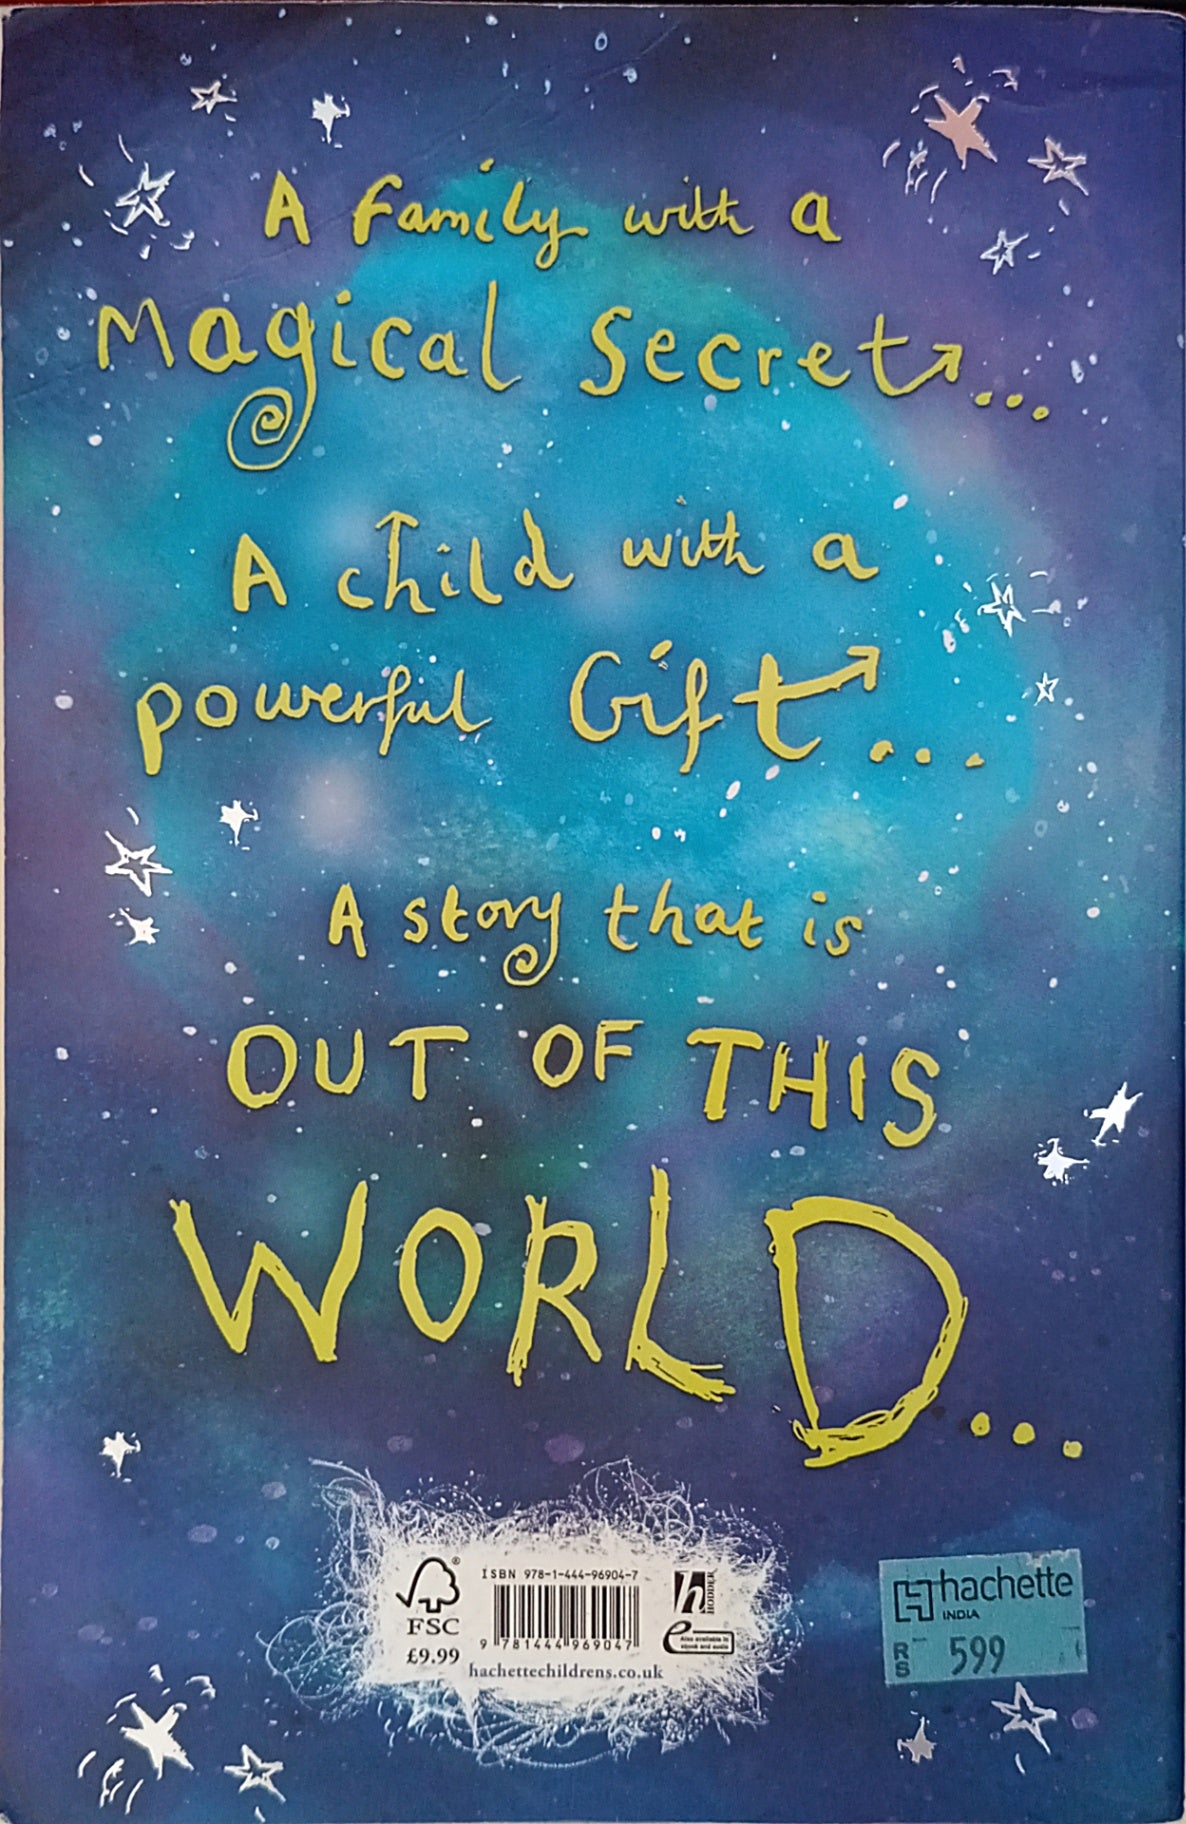 A Family with a
Magical Secret...
A child with a
powerful Gift...
A story that is
OUT OF THIS
WORLD...
ISBN 978-1-444-96904-7
FSC
®
£9.99
9 781444 969047
hachettechildrens.co.uk
h HODDER
e Also available in ebook and audio
hachette
INDIA
RS 599